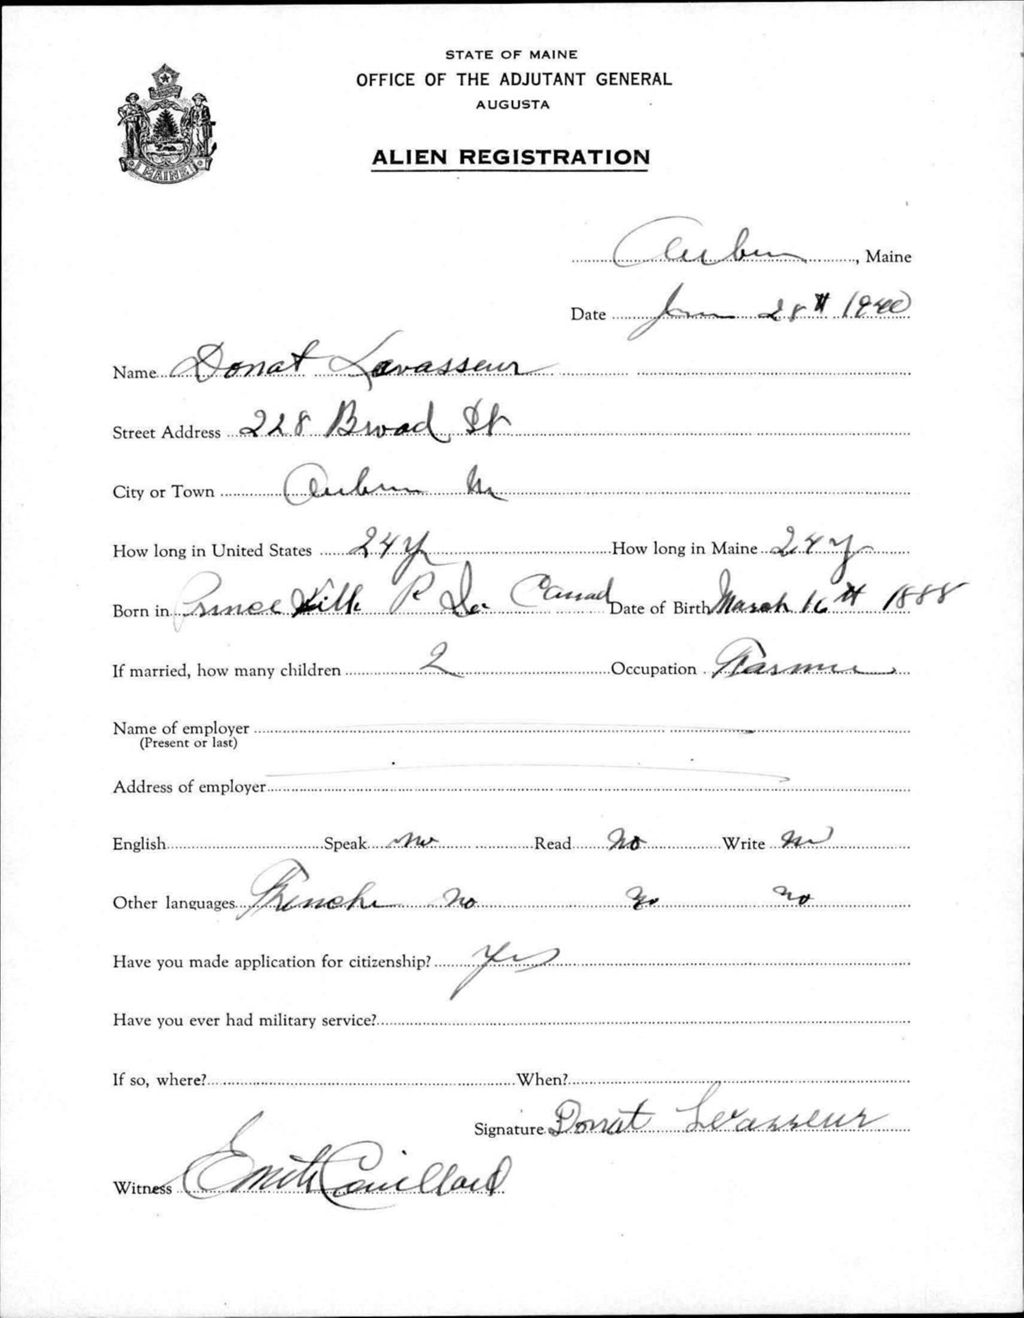 STATE OF MAINE
OFFICE OF THE ADJUTANT GENERAL
AUGUSTA
ALIEN REGISTRATION
MAINE
Auburn, Maine
Date June 28th 1940
Name Donat Lavasseur
Street Address 228 Broad St
City or Town Auburn Me
How long in United States 24 yr How long in Maine 24 y
Born in Prince P. Qu Canad Date of Birth March 16th 1888
If married, how many children 2 Occupation Farmer
Name of employer
(Present or last)
Address of employer
English Speak no Read No Write no
Other languages French no no no
Have you made application for citizenship? Yes
Have you ever had military service?
If so, where? When?
Signature Donat Levasseur
Witness Couillard